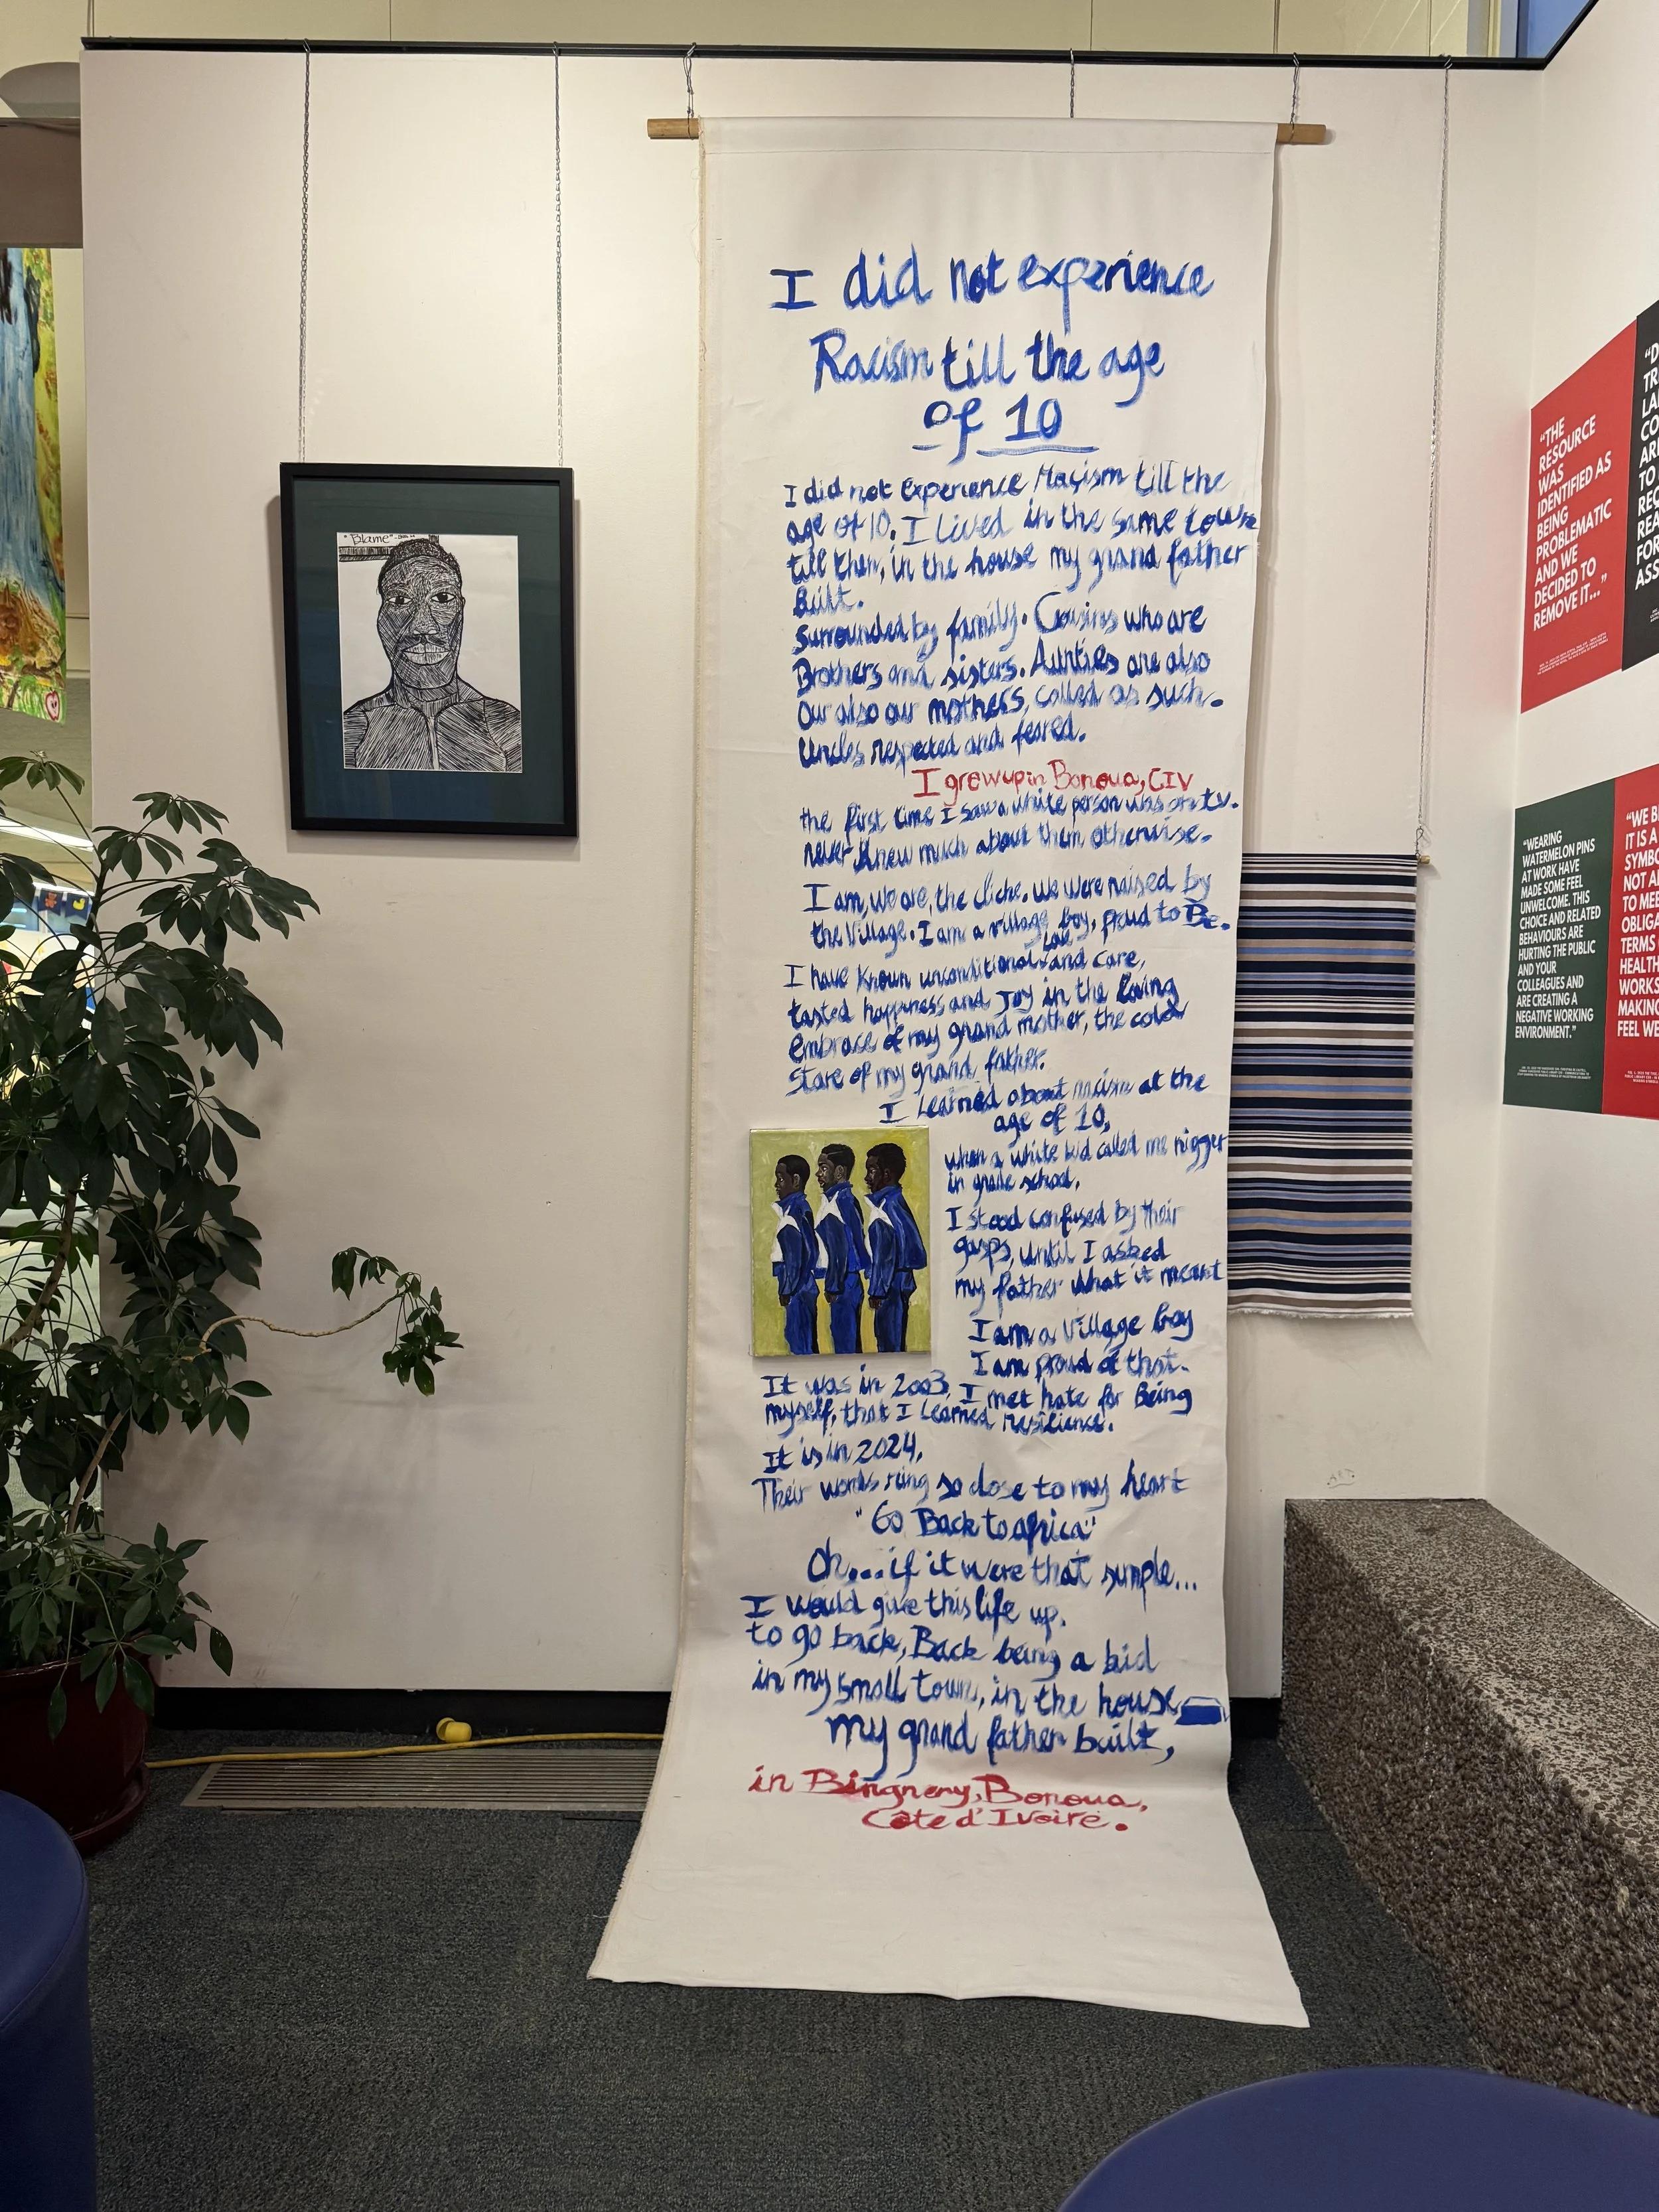 "Blame"
I did not experience
Racism till the age
of 10
I did not Experience Racism till the
age of 10. I lived in the same town
till then, in the house my grand father
Built.
Surrounded by family. Cousins who are
Brothers and sisters. Aunties are also
Our also our mothers, called as such.
Uncles respected and feared.
I grew up in Bonoua, CIV
the first time I saw a white person was on tv.
never knew much about them otherwise.
I am, we are, the cliche. We were raised by
the Village. I am a village boy, proud to Be.
I have known unconditional love and care,
tasted happiness and Joy in the loving
embrace of my grand mother, the cold
stare of my grand father.
I learned about racism at the
age of 10,
when a white kid called me nigger
in grade school.
I stood confused by their
gasps, until I asked
my father what it meant
I am a Village boy
I am proud of that.
It was in 2003, I met hate for Being
myself, that I learned resilience.
It is in 2024,
Their words ring so close to my heart
"Go Back to africa"
Oh... if it were that simple...
I would give this life up.
to go back, Back being a kid
in my small town, in the house
my grand father built,
in Bingneny, Bonoua,
Côte d'Ivoire.
"THE
RESOURCE
WAS
IDENTIFIED AS
BEING
PROBLEMATIC
AND WE
DECIDED TO
REMOVE IT..."
"WEARING
WATERMELON PINS
AT WORK HAVE
MADE SOME FEEL
UNWELCOME. THIS
CHOICE AND RELATED
BEHAVIOURS ARE
HURTING THE PUBLIC
AND YOUR
COLLEAGUES AND
ARE CREATING A
NEGATIVE WORKING
ENVIRONMENT."
"WE B
IT IS A
SYMBO
NOT A
TO ME
OBLIGA
TERMS
HEALTH
WORKS
MAKING
FEEL WE